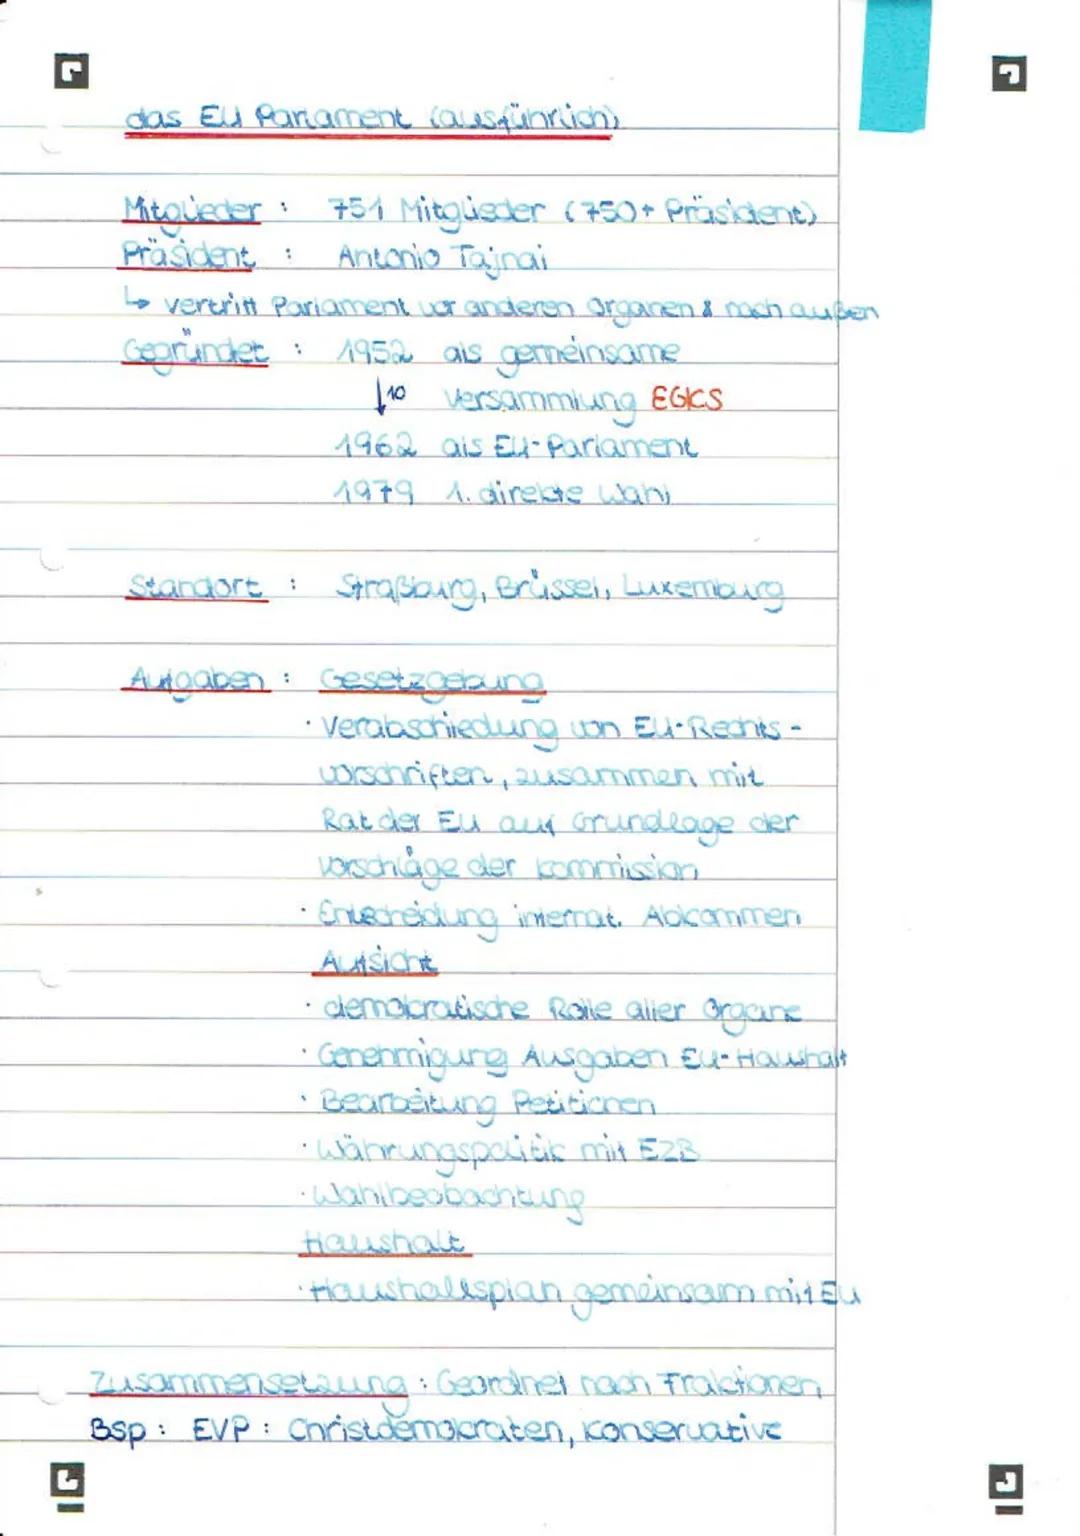 das EU Parlament (ausführlich)
Mitglieder : 751 Mitglieder (750+ Präsident)
Präsident : Antonio Tajnai
↳ vertritt Parlament vor anderen Organen & nach außen
Gegründet : 1952 als gemeinsame
↓10 Versammlung EGKS
1962 als EU-Parlament
1979 1. direkte Wahl
Standort : Straßburg, Brüssel, Luxemburg
Aufgaben : Gesetzgebung
· Verabschiedung von EU-Rechts-
vorschriften, zusammen mit
Rat der EU auf Grundlage der
Vorschläge der Kommission
· Entscheidung internat. Abkommen
Aufsicht
· demokratische Rolle aller Organe
· Genehmigung Ausgaben EU-Haushalt
· Bearbeitung Petitionen
· Währungspolitik mit EZB
· Wahlbeobachtung
Haushalt
· Haushaltsplan gemeinsam mit EU
Zusammensetzung : Geordnet nach Fraktionen
Bsp : EVP : Christdemokraten, Konservative